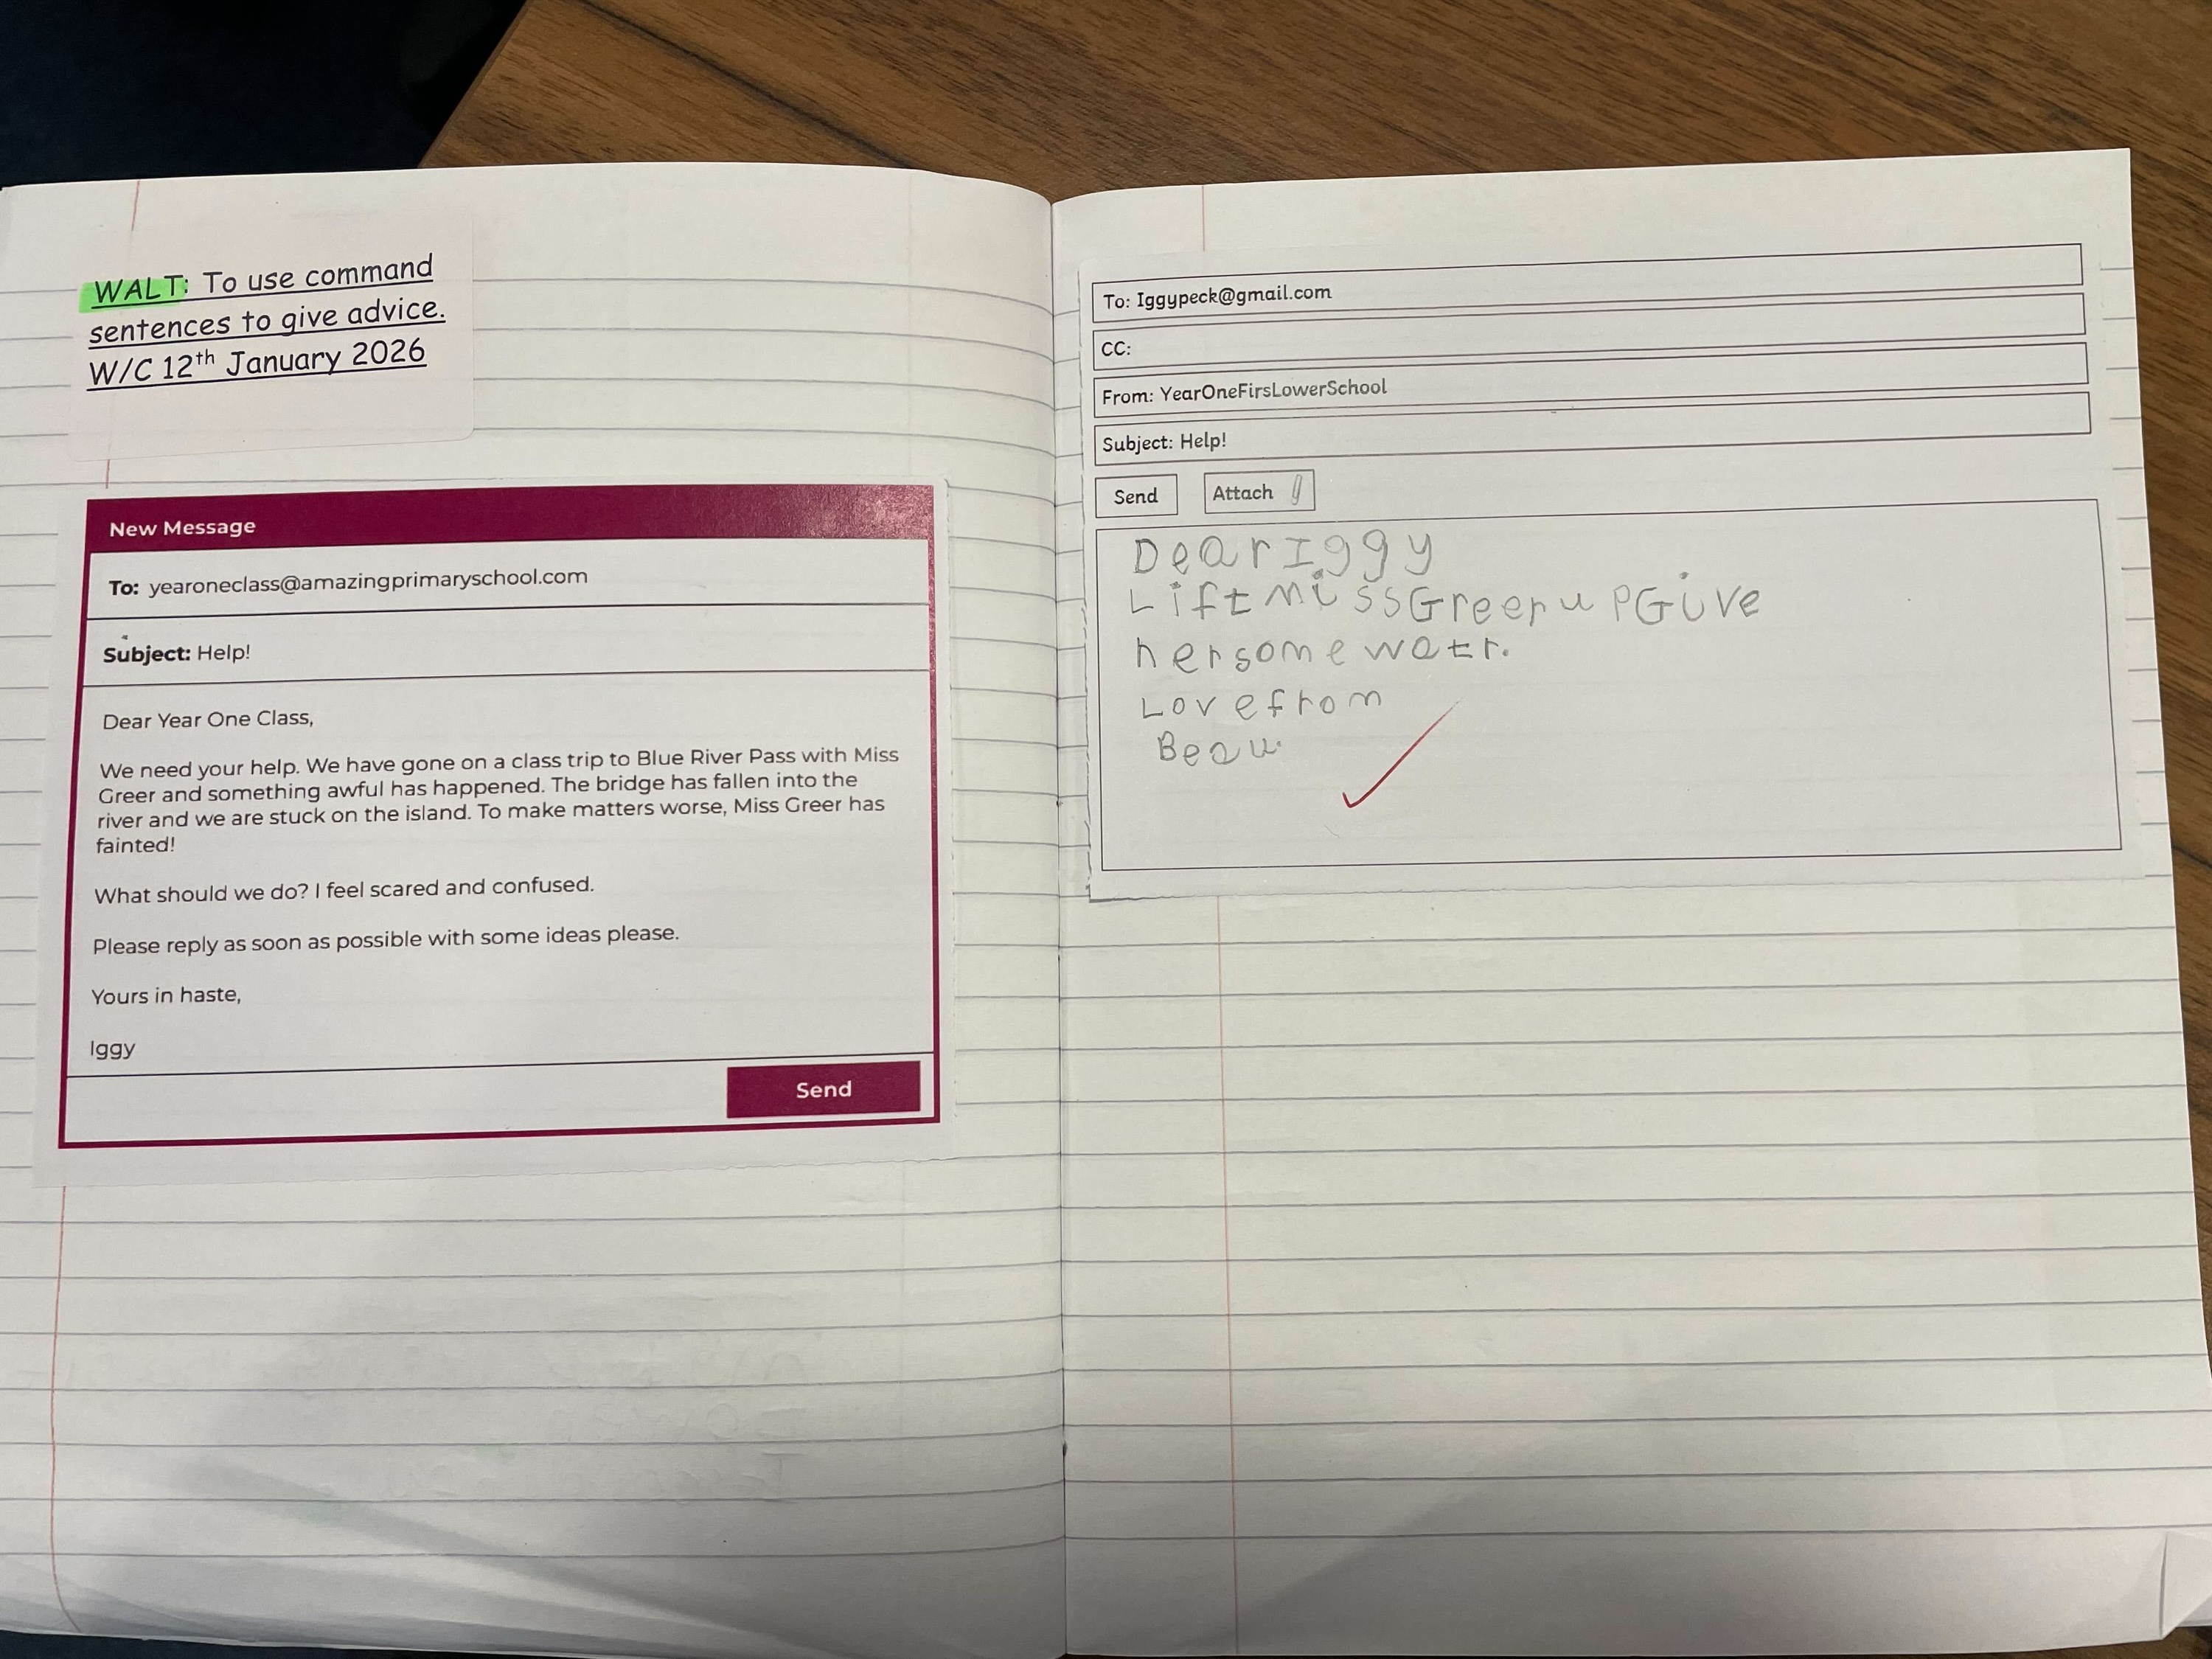 WALT: To use command
sentences to give advice.
W/C 12th January 2026
New Message
To: yearoneclass@amazingprimaryschool.com
Subject: Help!
Dear Year One Class,
We need your help. We have gone on a class trip to Blue River Pass with Miss
Greer and something awful has happened. The bridge has fallen into the
river and we are stuck on the island. To make matters worse, Miss Greer has
fainted!
What should we do? I feel scared and confused.
Please reply as soon as possible with some ideas please.
Yours in haste,
Iggy
Send
To: Iggypeck@gmail.com
CC:
From: YearOneFirsLowerSchool
Subject: Help!
Send Attach
Dear Iggy
Lift miss Greer up Give
her some watr.
Love from
Beau.